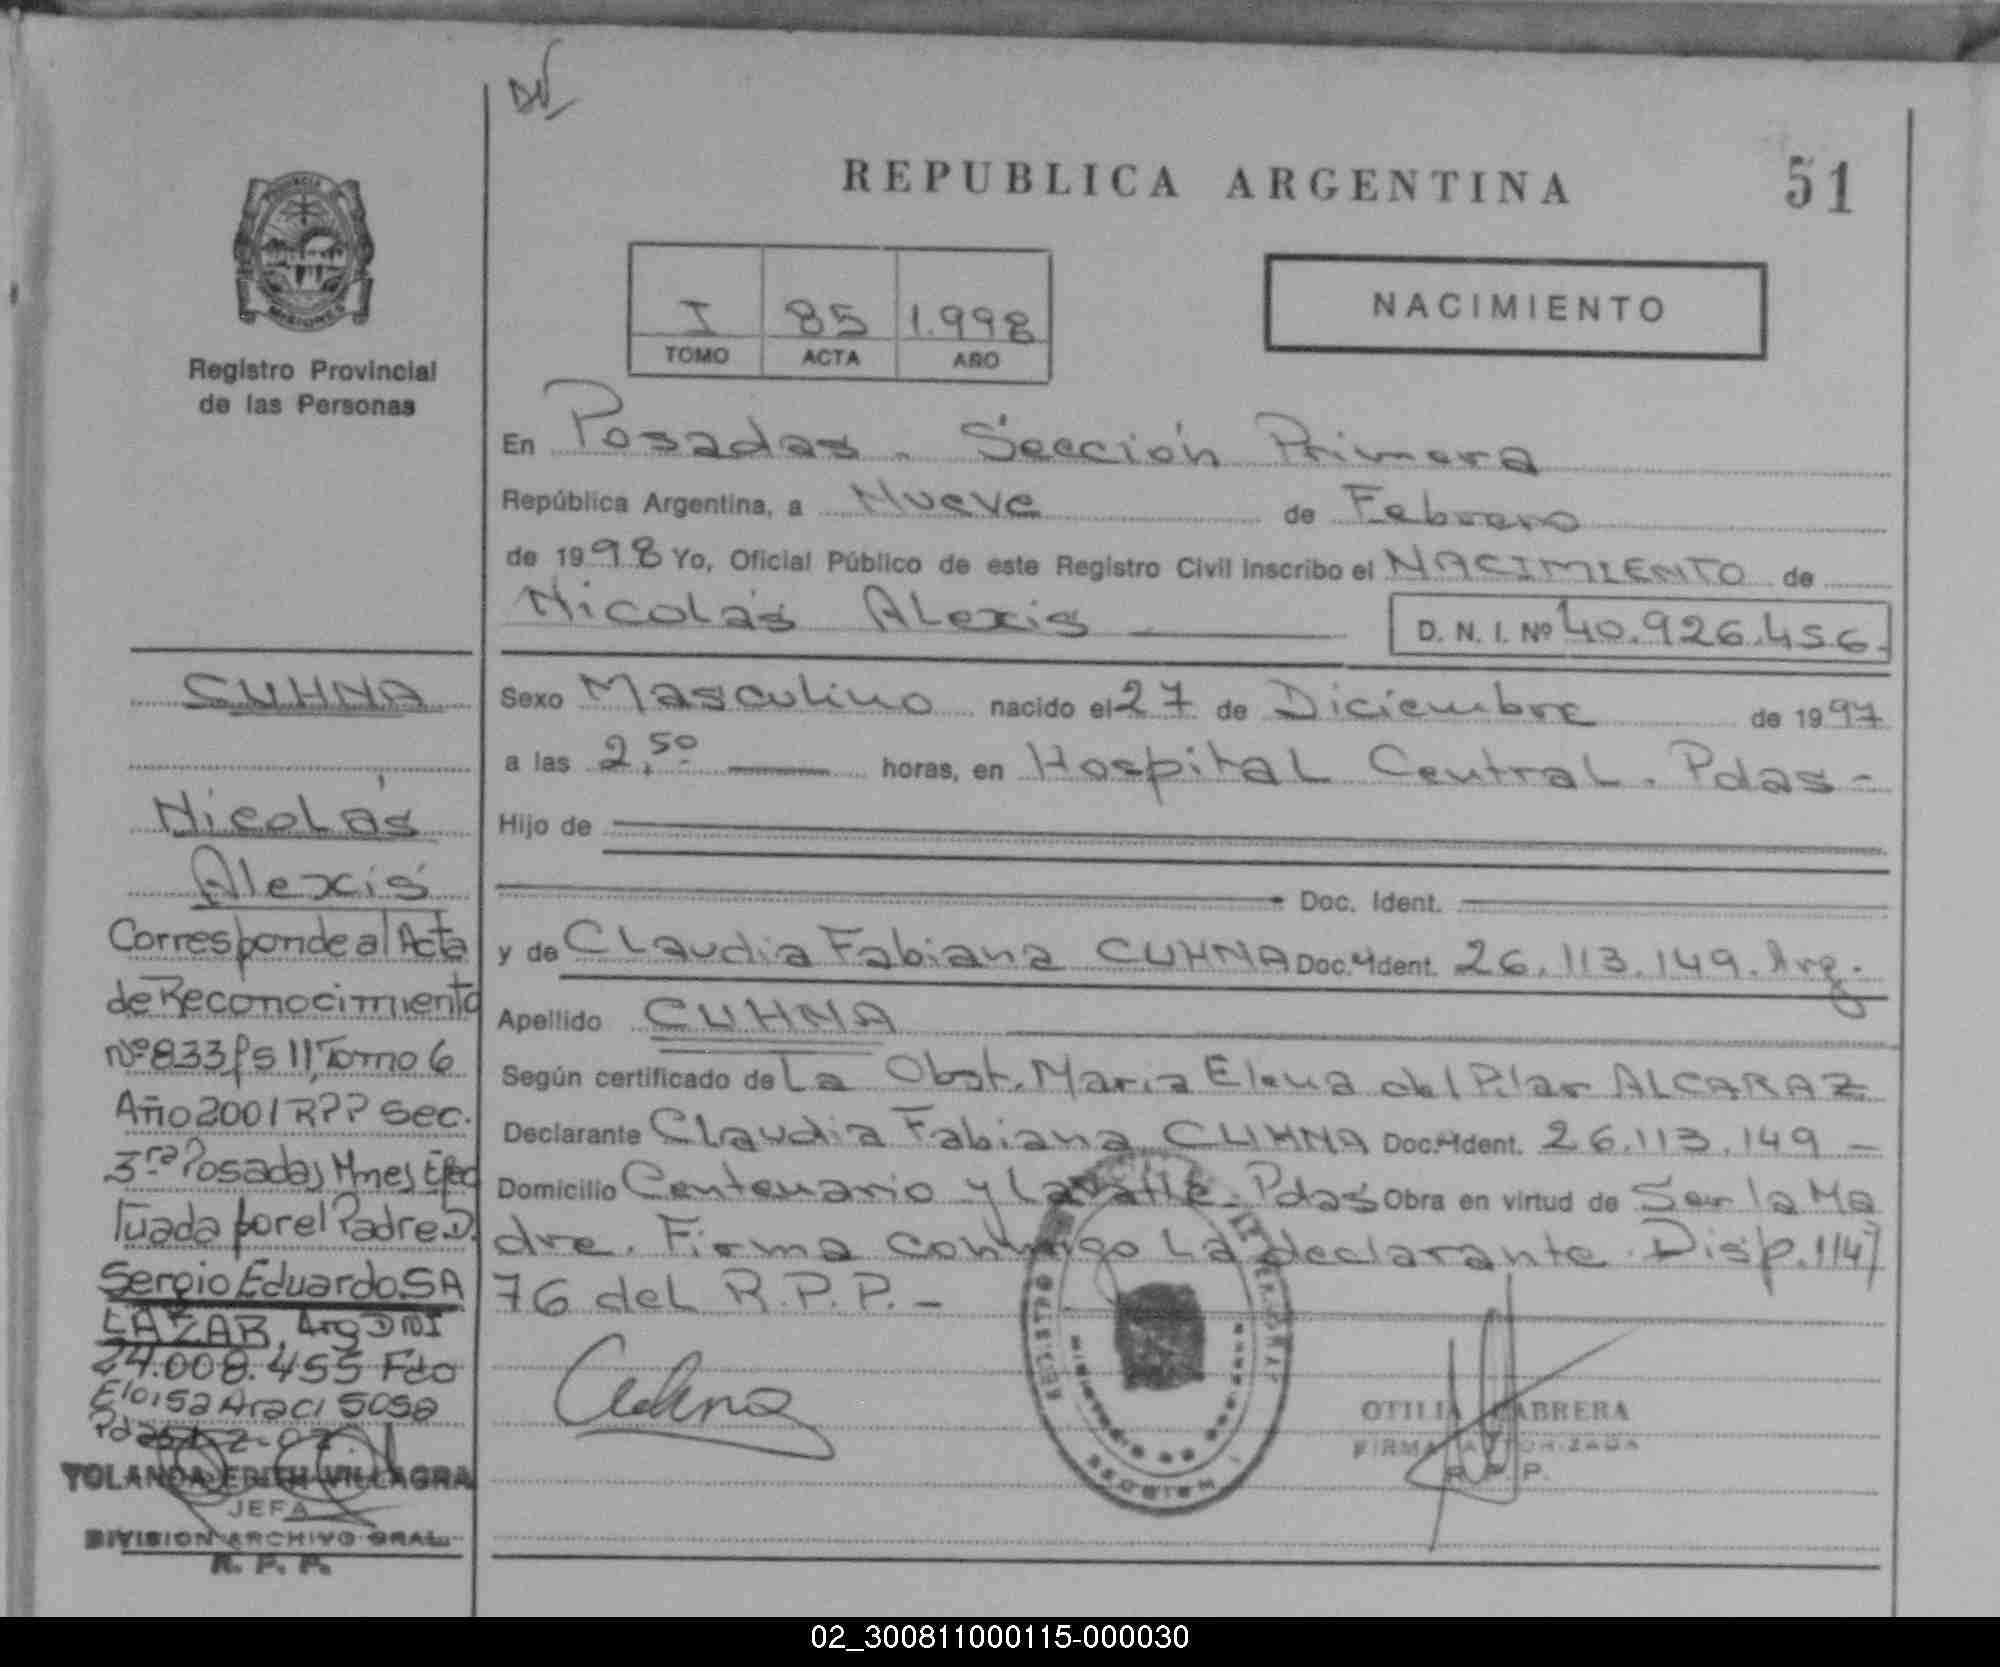 DN
REPUBLICA ARGENTINA
51
MISIONES
Registro Provincial
de las Personas
I 85 1.998
TOMO ACTA AÑO
NACIMIENTO
En Posadas - Sección Primera
República Argentina, a Nueve de Febrero
de 1998 Yo, Oficial Público de este Registro Civil inscribo el NACIMIENTO de
Nicolás Alexis
D. N. I. Nº 40.926.456.
Sexo Masculino nacido el 27 de Diciembre de 1997
a las 2,50 horas, en Hospital Central. Pdas -
Hijo de
Doc. Ident.
y de Claudia Fabiana CUHNA Doc. Ident. 26.113.149. Arg.
Apellido CUHNA
Según certificado de La Obst. Maria Elena del Pilar ALCARAZ
Declarante Claudia Fabiana CUHNA Doc. Ident. 26.113.149 -
Domicilio Centenario y Lavalle. Pdas Obra en virtud de Ser la Ma
dre. Firma conmigo La declarante. Disp. 114/
76 del R.P.P. -
Cuhna
OTILIA CABRERA
FIRMA AUTORIZADA
R. P. P.
CUHNA
Nicolás
Alexis
Corresponde al Acta
de Reconocimiento
Nº 833 fs 11, Tomo 6
Año 2001 RPP Sec.
3ra Posadas Mnes Efec
tuada por el Padre D.
Sergio Eduardo SA
LAZAR, Arg DNI
24.008.455 Fdo
Eloisa Araci Sosa
YOLANDA EDITH VILLAGRA
JEFA
DIVISION ARCHIVO GRAL.
R. P. P.
02_300811000115-000030